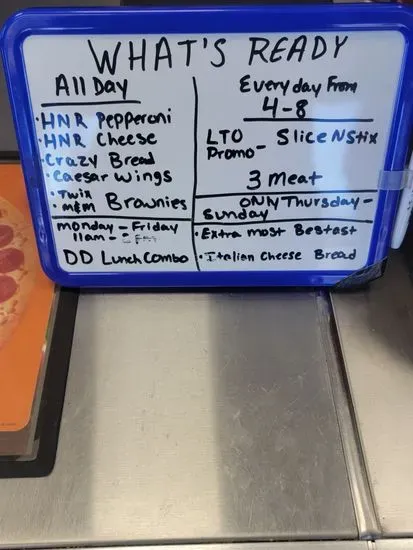 WHAT'S READY
All Day
• HNR Pepperoni
• HNR Cheese
• Crazy Bread
• Caesar Wings
• Twix
• m&m Brownies
monday - Friday
11am -
DD Lunch Combo
Everyday From
4-8
LTO Promo - Slice N Stix
3 Meat
ONLY Thursday -
Sunday
• Extra most Bestast
• Italian Cheese Bread